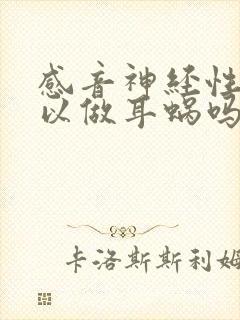 感音神经性
以做耳蜗吗
卡洛斯斯利姆